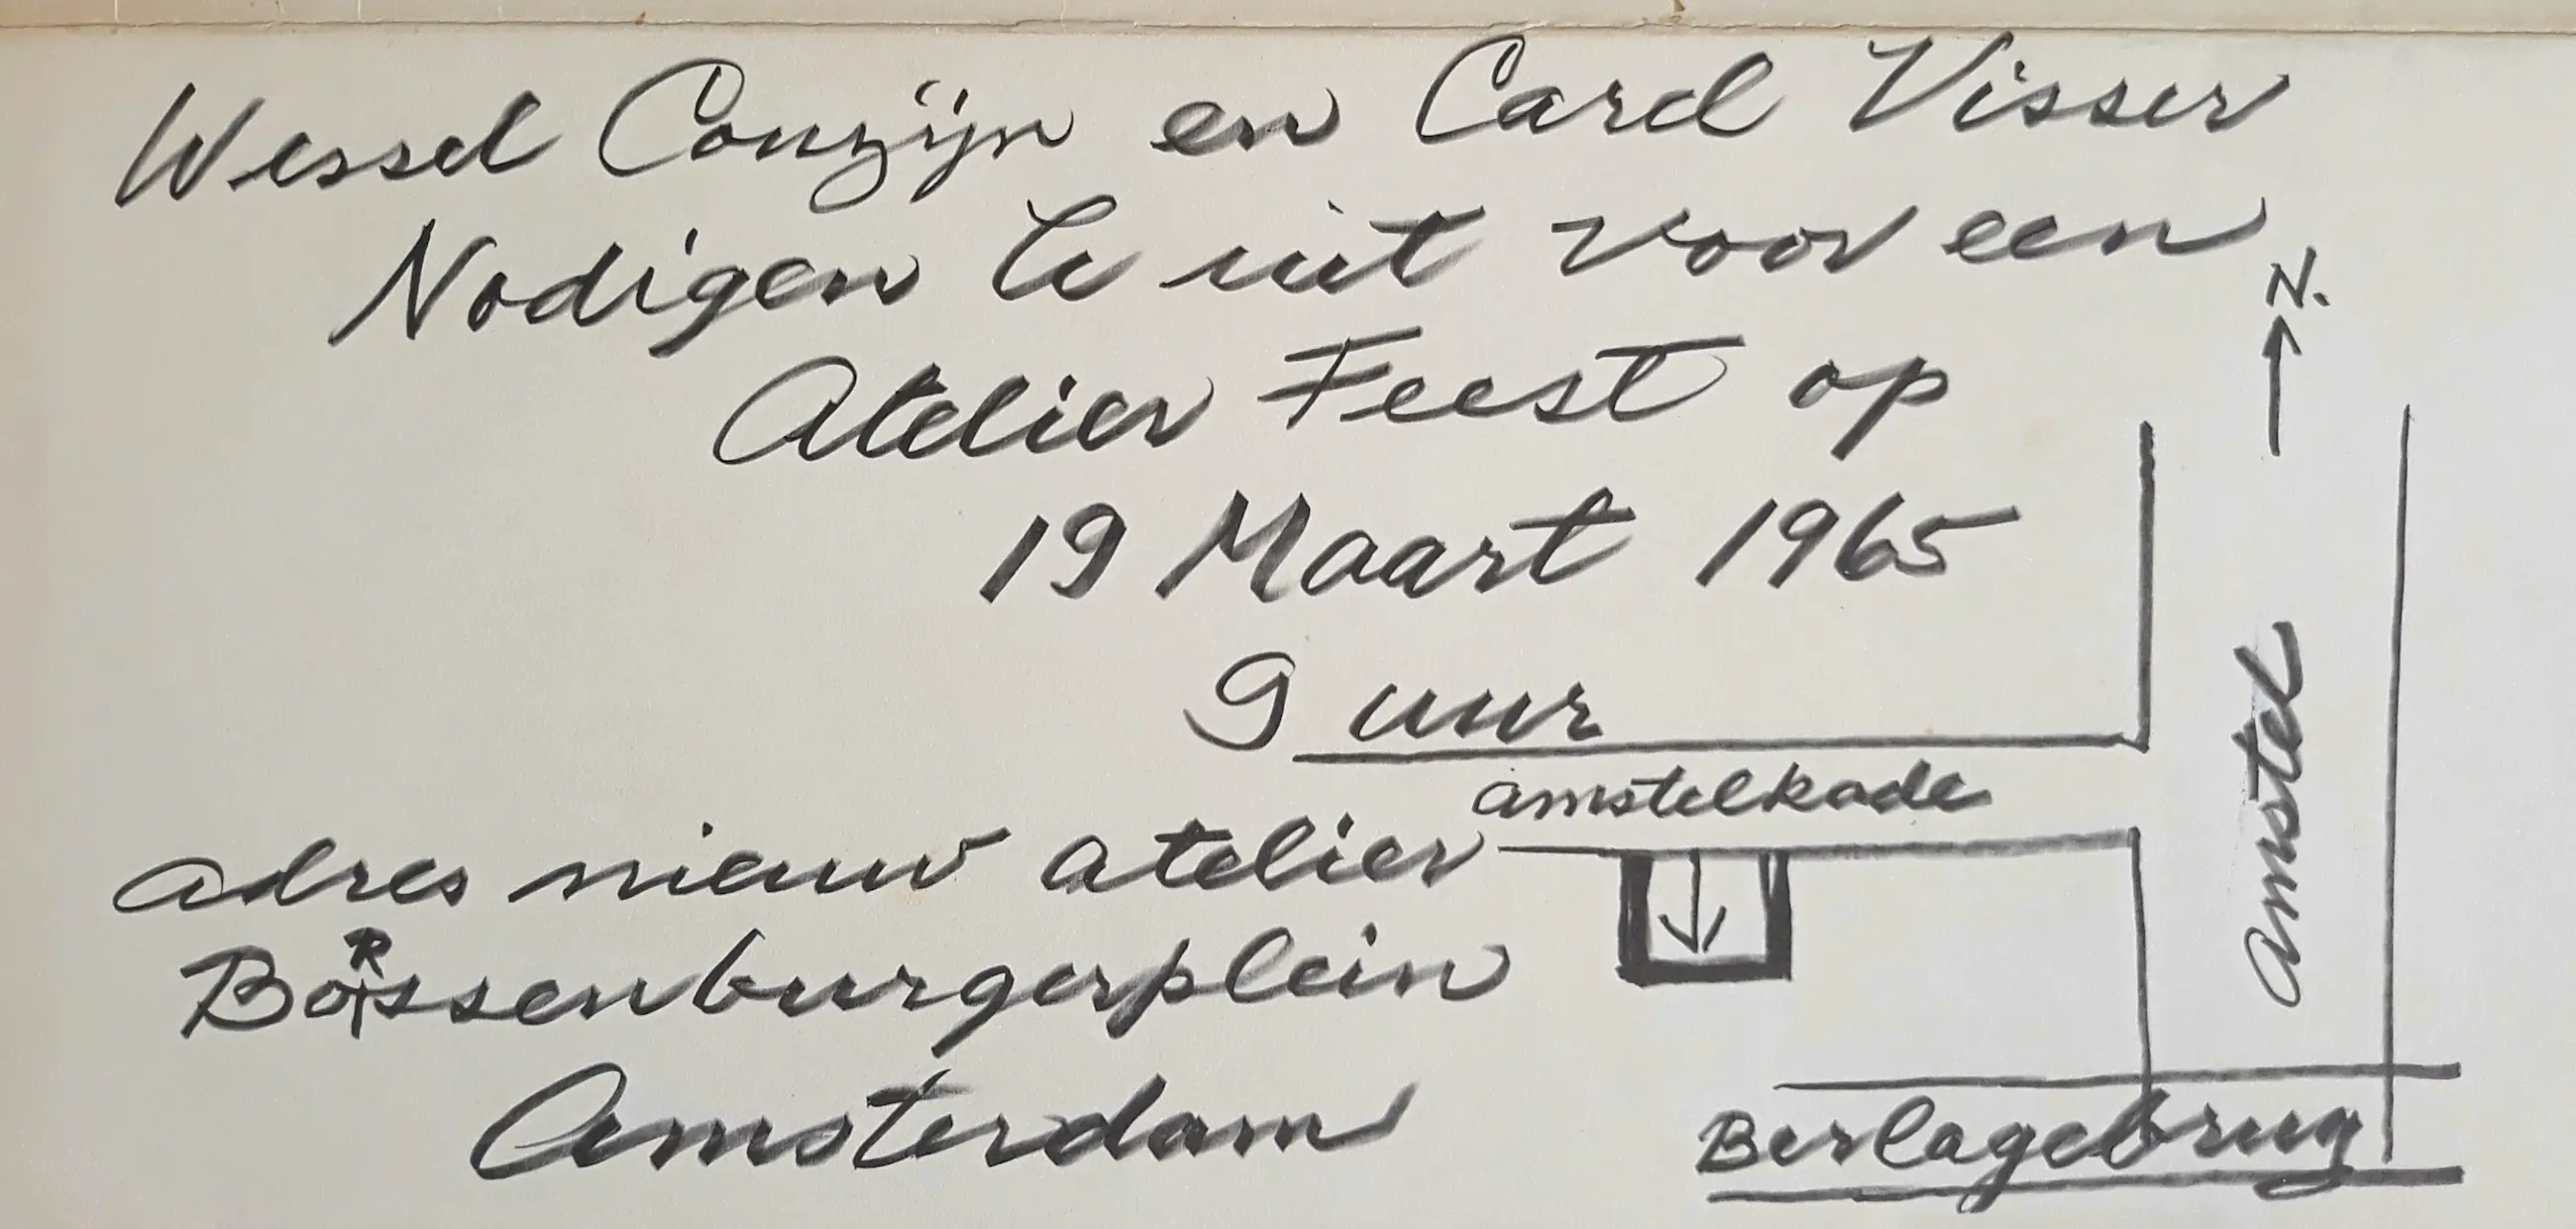 Wessel Couzijn en Carel Visser
Nodigen U uit voor een
Atelier Feest op
19 Maart 1965
9 uur
adres nieuw atelier
BoRssenburgerplein
Amsterdam
N.
amstelkade
Amstel
Berlagebrug